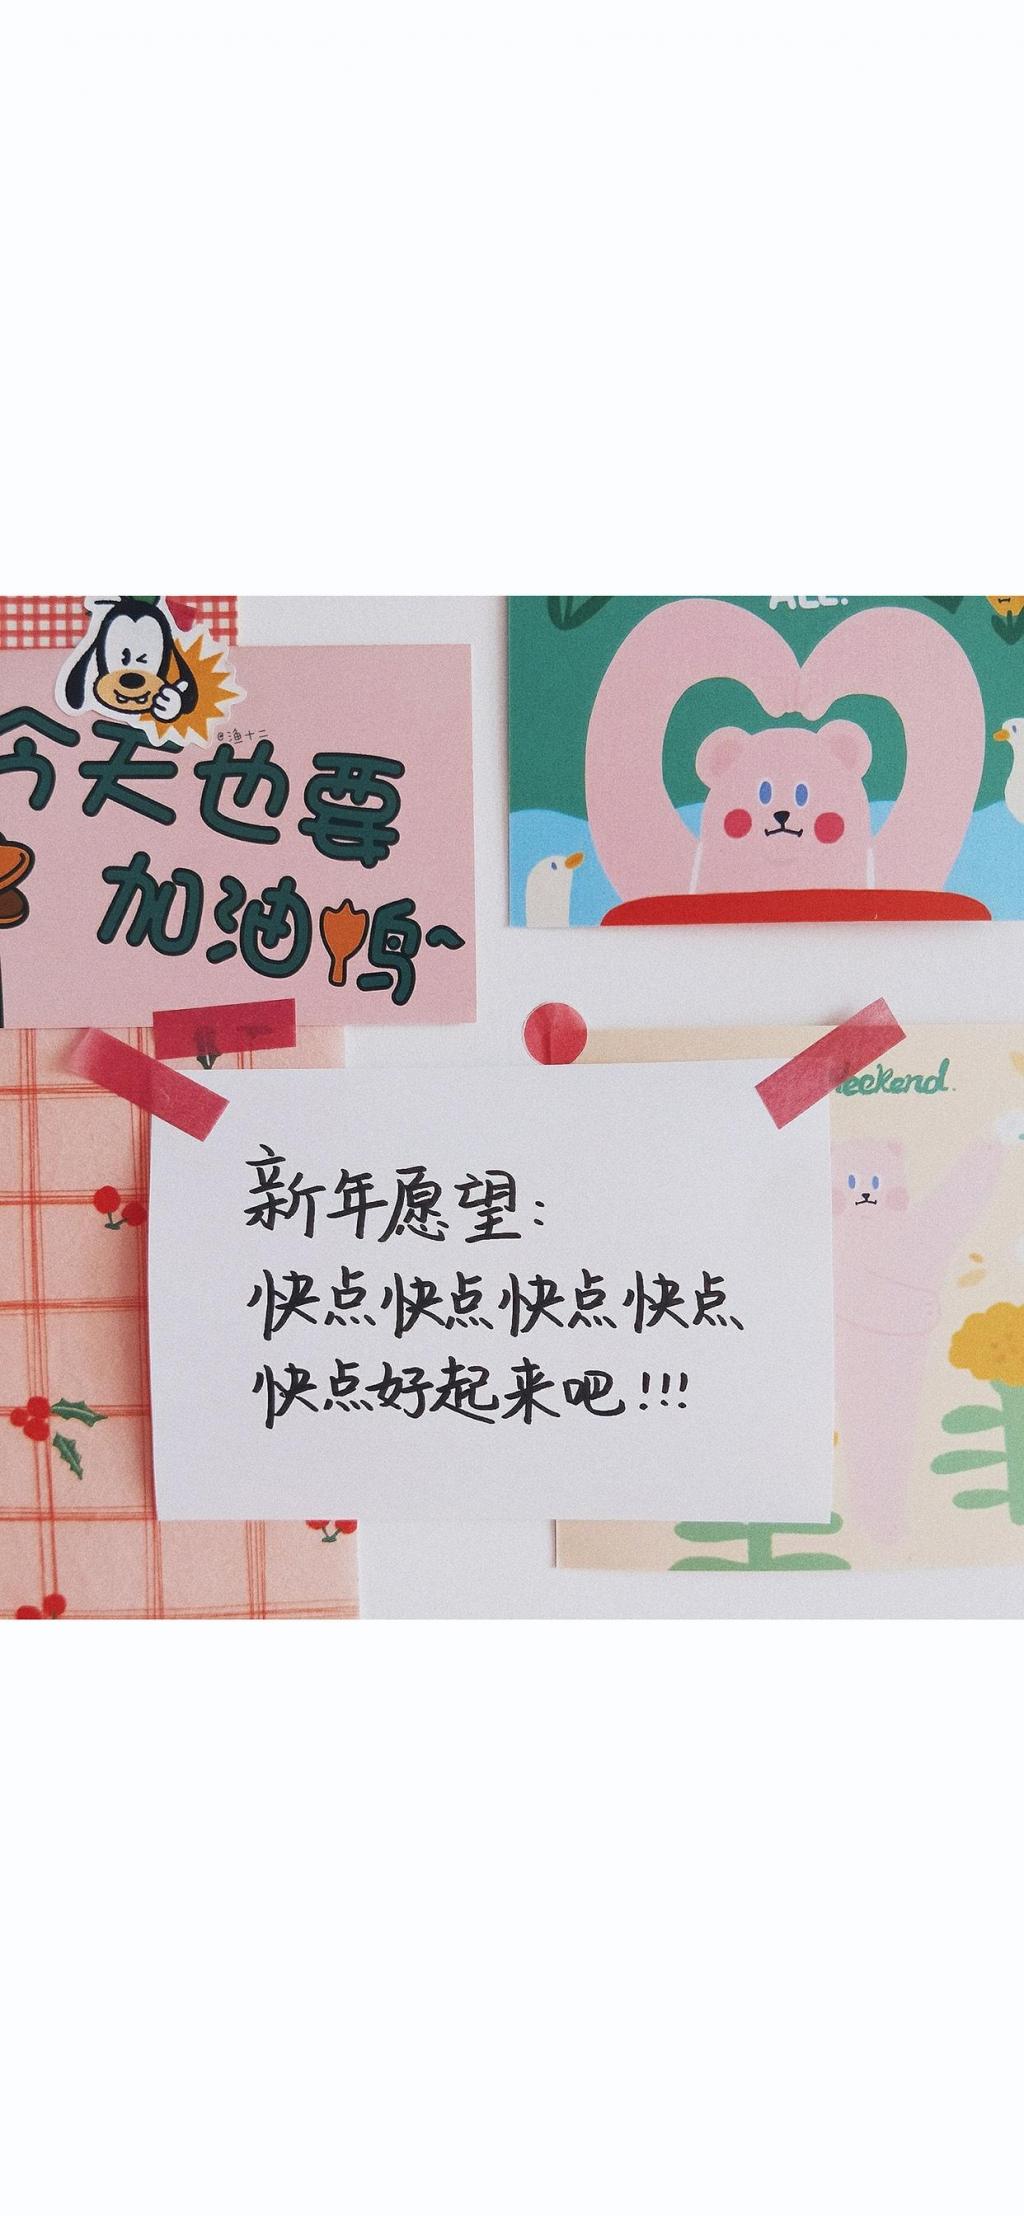 ALL!
今天也要
@渔十二
加油鸭~
Weekend.
新年愿望:
快点快点快点快点
快点好起来吧!!!